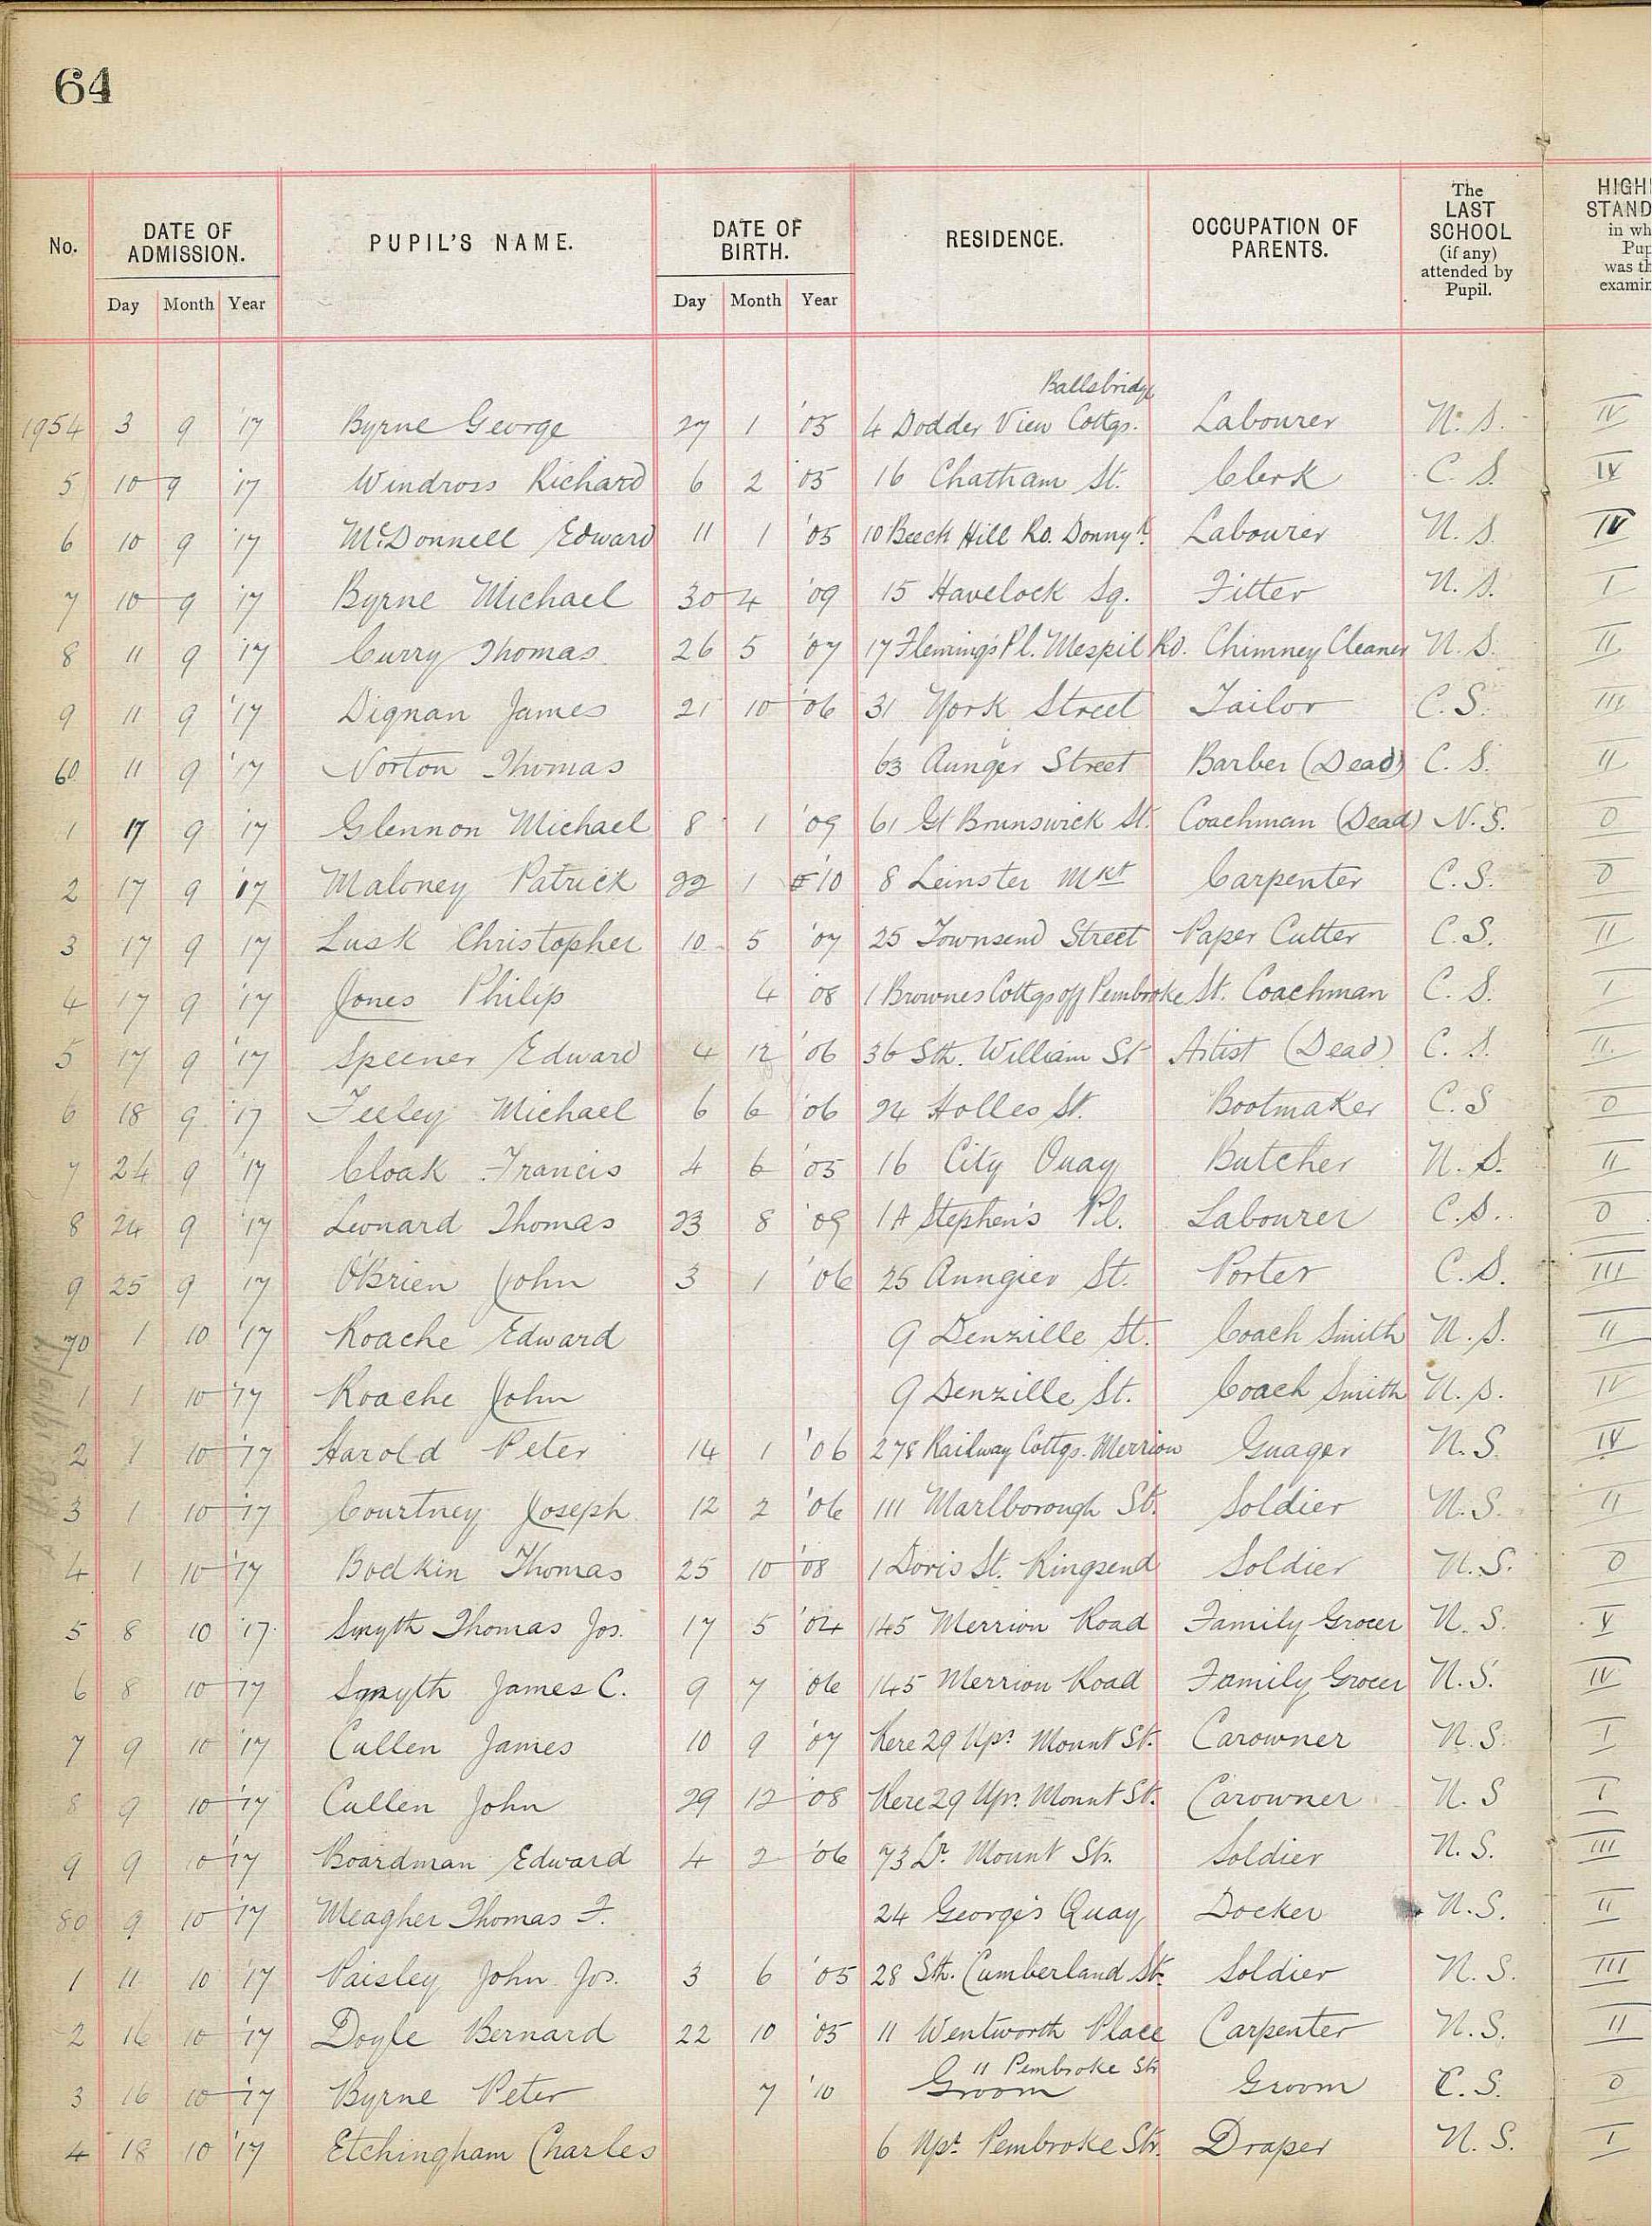 64
No. DATE OF ADMISSION. PUPIL'S NAME. DATE OF BIRTH. RESIDENCE. OCCUPATION OF PARENTS. The LAST SCHOOL (if any) attended by Pupil. HIGH STAND in wh Pup was th examin
Day Month Year Day Month Year
Ballsbridge
1954 3 9 '17 Byrne George 27 1 '05 4 Dodder View Cottgs. Labourer N. S. IV
5 10 9 '17 Windross Richard 6 2 '05 16 Chatham St. Clerk C. S. IV
6 10 9 '17 McDonnell Edward 11 1 '05 10 Beech Hill Rd. Donnyk. Labourer N. S. IV
7 10 9 '17 Byrne Michael 30 4 '09 15 Havelock Sq. Fitter N. S. I
8 11 9 '17 Curry Thomas 26 5 '07 17 Fleming's Pl. Mespil Rd. Chimney Cleaner N. S. II
9 11 9 '17 Dignan James 21 10 '06 31 York Street Tailor C. S. III
60 11 9 '17 Norton Thomas 63 Aunger Street Barber (Dead) C. S. II
1 17 9 '17 Glennon Michael 8 1 '09 61 Gt Brunswick St. Coachman (Dead) N. S. 0
2 17 9 '17 Maloney Patrick 22 1 '10 8 Leinster Mkt Carpenter C. S. 0
3 17 9 '17 Lusk Christopher 10 5 '07 25 Townsend Street Paper Cutter C. S. II
4 17 9 '17 Jones Philip 4 '08 1 Brownes Cottgs off Pembroke St. Coachman C. S. I
5 17 9 '17 Speener Edward 4 12 '06 36 Sth. William St Artist (Dead) C. S. II
6 18 9 '17 Feeley Michael 6 6 '06 24 Holles St. Bootmaker C. S 0
7 24 9 '17 Cloak Francis 4 6 '05 16 City Quay Butcher N. S. II
8 24 9 '17 Leonard Thomas 23 8 '09 1A Stephen's Pl. Labourer C. S. 0
9 25 9 '17 O'Brien John 3 1 '06 25 Aungier St. Porter C. S. III
70 1 10 '17 Roache Edward 9 Denzille St. Coach Smith N. S. II
1 1 10 '17 Roache John 9 Denzille St. Coach Smith N. S. IV
2 1 10 '17 Harold Peter 14 1 '06 278 Railway Cottgs. Merrion Guager N. S. IV
3 1 10 '17 Courtney Joseph 12 2 '06 111 Marlborough St. Soldier N. S. II
4 1 10 '17 Bodkin Thomas 25 10 '08 1 Doris St. Ringsend Soldier N. S. 0
5 8 10 '17 Smyth Thomas Jos. 17 5 '04 145 Merrion Road Family Grocer N. S. V
6 8 10 '17 Smyth James C. 9 7 '06 145 Merrion Road Family Grocer N. S. IV
7 9 10 '17 Cullen James 10 9 '07 Rere 29 Upr. Mount St. Carowner N. S. I
8 9 10 '17 Cullen John 29 12 '08 Rere 29 Upr. Mount St. Carowner N. S I
9 9 10 '17 Boardman Edward 4 2 '06 73 Lr. Mount Str. Soldier N. S. III
80 9 10 '17 Meagher Thomas F. 24 George's Quay Docker N. S. II
1 11 10 '17 Paisley John Jos. 3 6 '05 28 Sth. Cumberland St. Soldier N. S. III
2 16 10 '17 Doyle Bernard 22 10 '05 11 Wentworth Place Carpenter N. S. II
11 Pembroke Str
3 16 10 '17 Byrne Peter 7 '10 Groom Groom C. S. 0
4 18 10 '17 Etchingham Charles 6 Upr. Pembroke Str. Draper N. S. I